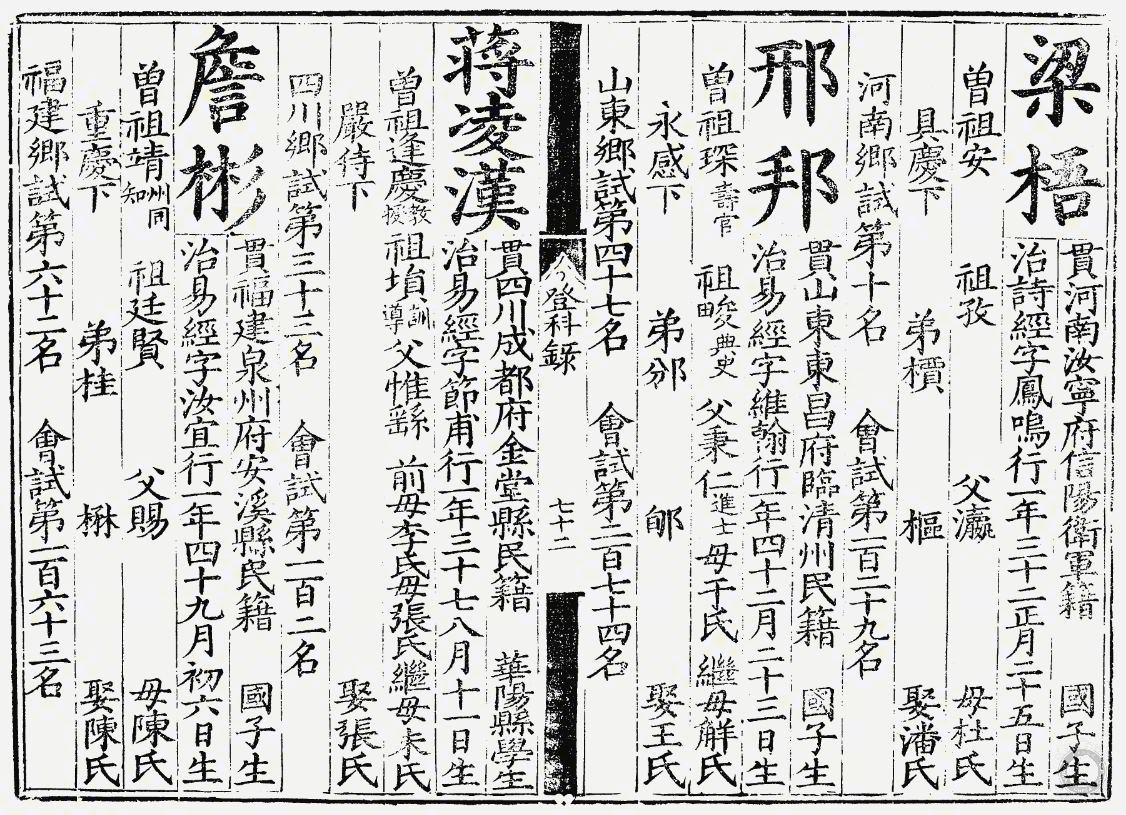 梁梧
貫河南汝寧府信陽衛軍籍 國子生
治詩經字鳳鳴行一年三十二正月二十五日生
曾祖安 祖孜 父瀛 母杜氏
具慶下 弟檟 樞 娶潘氏
河南鄉試第十名 會試第一百二十九名
邢邦
貫山東東昌府臨清州民籍 國子生
治易經字維翰行一年四十二月二十三日生
曾祖琛壽官 祖畯典史 父秉仁進士 母干氏 繼母解氏
永感下 弟邠 郇 娶王氏
山東鄉試第四十七名 會試第二百七十四名
登科錄 七十二
蔣淩漢
貫四川成都府金堂縣民籍 華陽縣學生
治易經字節甫行一年三十七八月十一日生
曾祖逢慶教授 祖塤訓導 父惟繇 前母李氏 母張氏 繼母朱氏
嚴侍下 娶張氏
四川鄉試第三十三名 會試第一百二名
詹彬
貫福建泉州府安溪縣民籍 國子生
治易經字汝宜行一年四十九月初六日生
曾祖靖知州同 祖廷賢 父賜 母陳氏
重慶下 弟桂 楙 娶陳氏
福建鄉試第六十二名 會試第一百六十三名